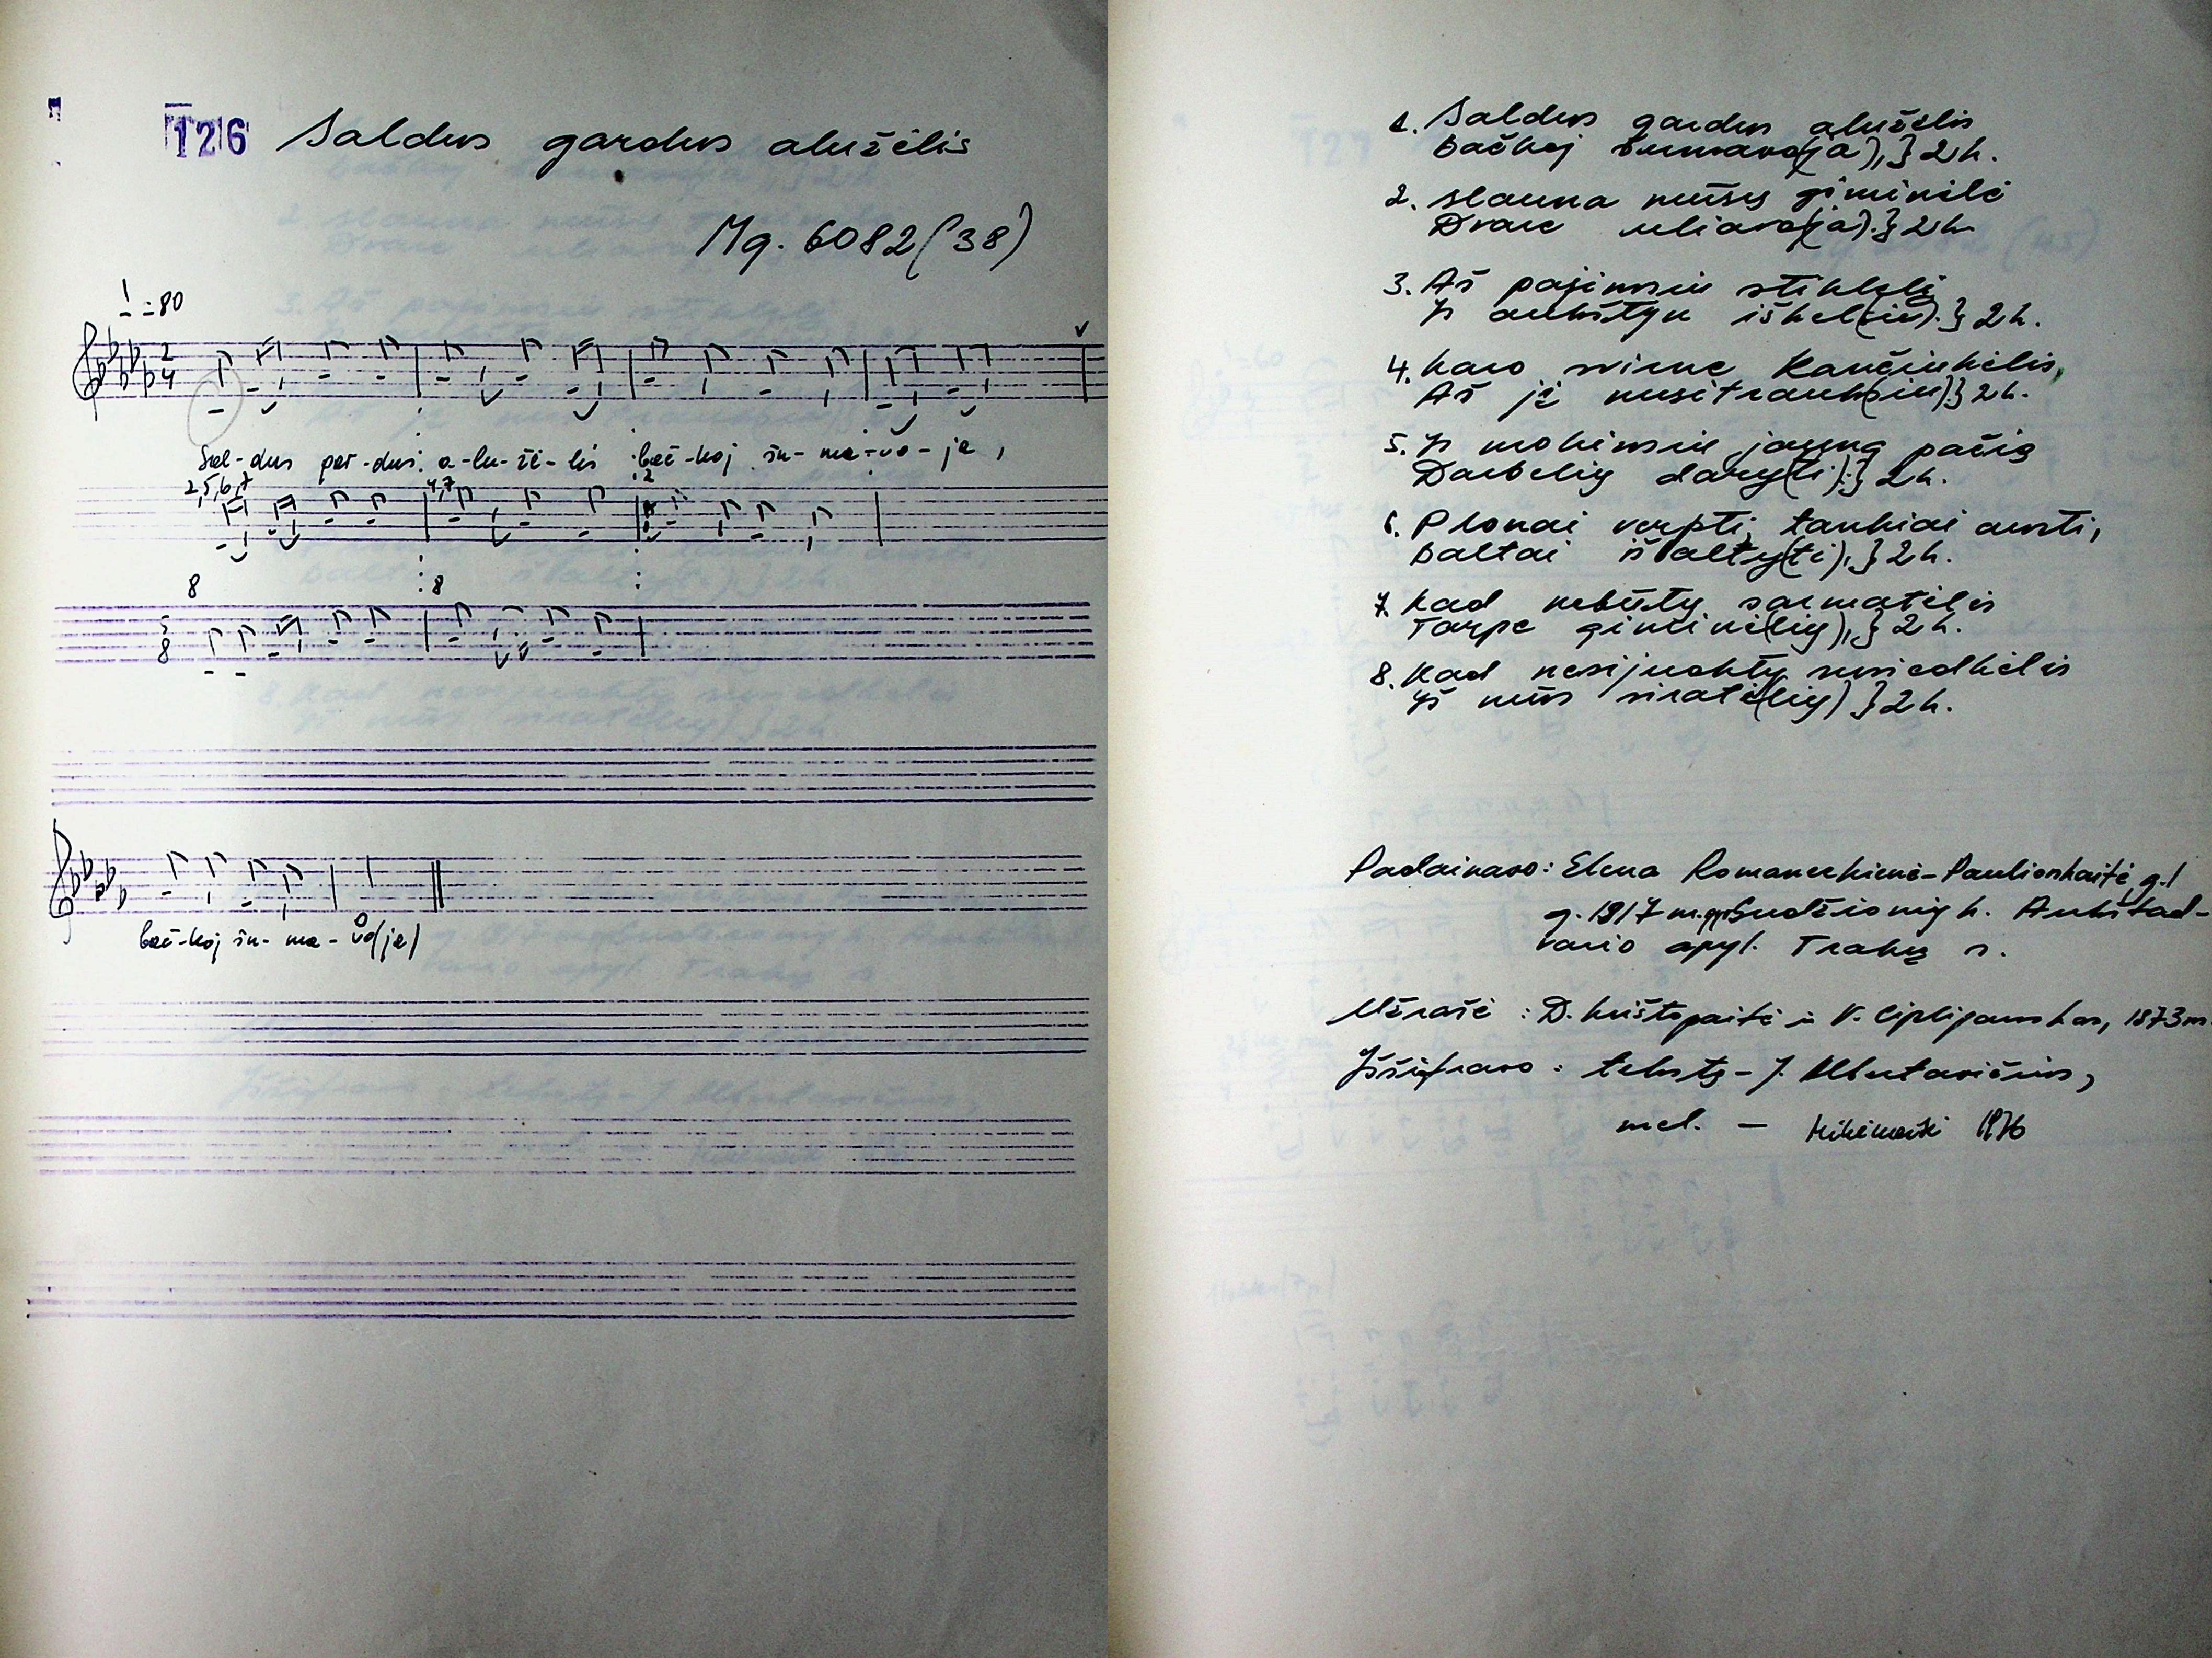 126 Saldus gardus alužėlis
Mg. 6082(38)
=80
2
4
Sal-dus gar-dus a-lu-žė-lis bač-koj šu-ma-vo-ja,
2,5,6,7
4,7
2
8
8
5
8
bač-koj šu-ma-vo(ja)
1. Saldus gardus alužėlis
Bačkoj šumavo(ja),}2k.
2. Slauna mūsų giminėlė
Dvare uliavo(ja).}2k.
3. Aš pajimsiu stiklelį
Ir aukštyn iškel(siu).}2k.
4. Karo siene kančiukėlis,
Aš jį nusitrauk(siu)}2k.
5. Ir mokinsiu jauną pačią
Darbelių dary(ti):}2k.
6. Plonai verpti, tankiai austi,
Baltai išbalty(ti),}2k.
7. Kad nebūtų sarmatėlės
Tarpe giminė(lių),}2k.
8. Kad nesijuoktų susiedkėlės
Iš mūs siratė(lių)}2k.
Padainavo: Elena Romaneckienė-Paulionkaitė, g.1
g. 1917 m. Sudžionių k. Aukštad-
vario apyl. Trakų r.
Užrašė: D. Krištopaitė ir V. Cipliganskas, 1973m
Iššifravo: tekstą - J. Albertavičius,
mel. — 1976